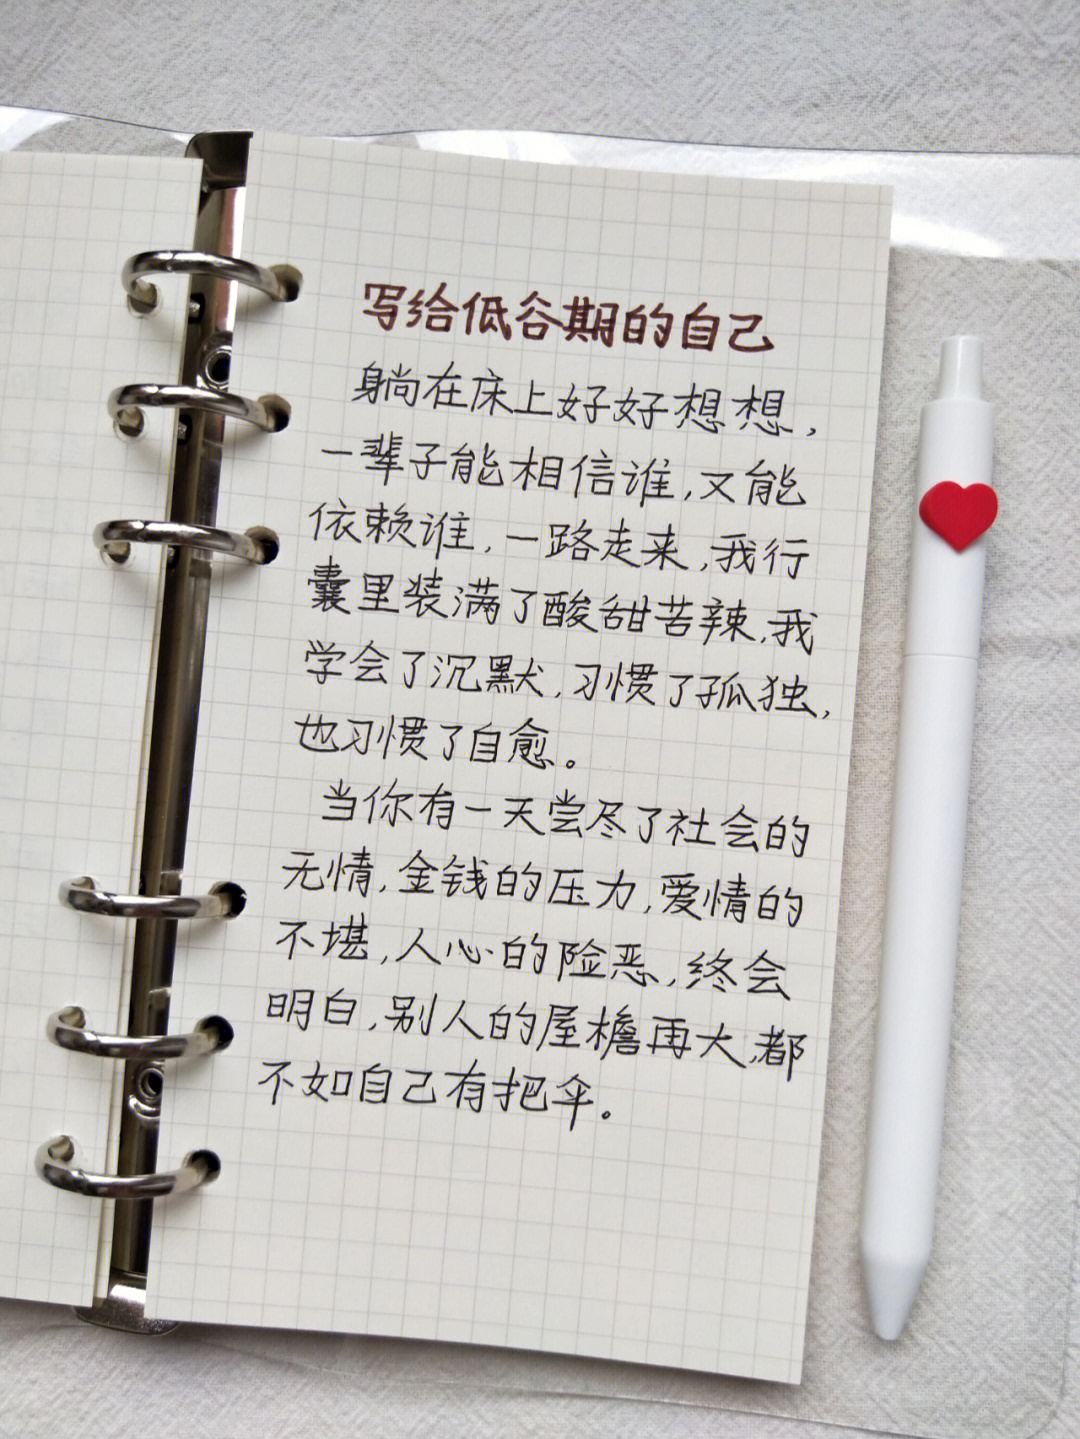 写给低谷期的自己
躺在床上好好想想，
一辈子能相信谁，又能
依赖谁，一路走来，我行
囊里装满了酸甜苦辣，我
学会了沉默，习惯了孤独，
也习惯了自愈。
当你有一天尝尽了社会的
无情，金钱的压力，爱情的
不堪，人心的险恶，终会
明白，别人的屋檐再大，都
不如自己有把伞。